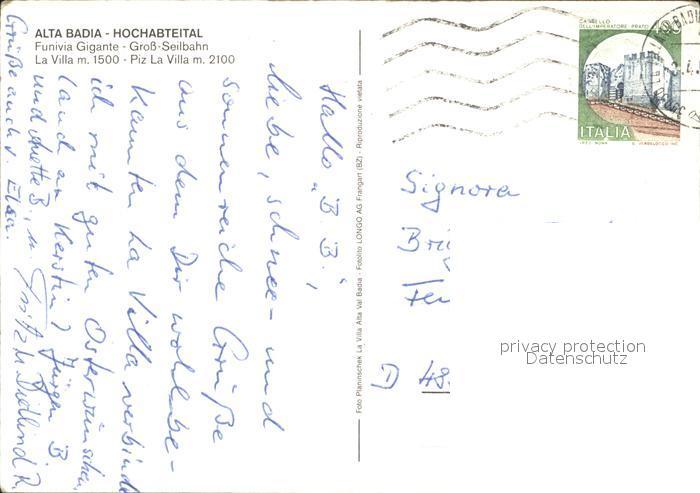 ALTA BADIA - HOCHABTEITAL
Funivia Gigante - Groß-Seilbahn
La Villa m. 1500 - Piz La Villa m. 2100
Hallo „B B.“,
liebe, schnee- und
sonnenreiche Grüße
aus dem Dir wohlbe-
kannten La Villa verbinde
ich mit guten Osterwünschen
(auch an Kerstin) Jürgen B.
und Anette B., u. Fritz u. Dietlind R.
Grüße auch v. Elsa.
Foto Planinschek La Villa Alta Val Badia - Fotolito LONGO AG Frangart (BZ) - Riproduzione vietata
CASTELLO
DELL'IMPERATORE PRATO
ITALIA
Signora
Bri
Fer
D 48.
privacy protection
Datenschutz